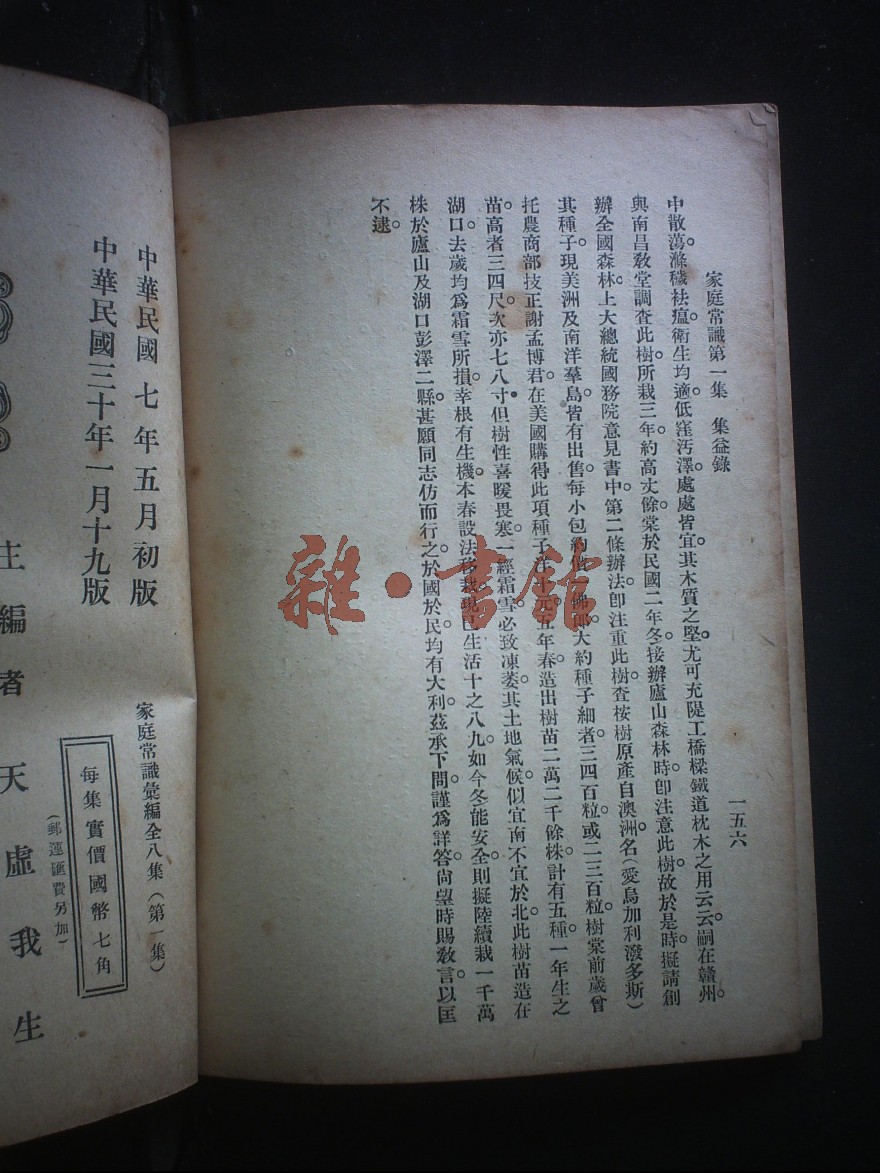 家庭常識第一集　集益錄
一五六
中散蕩滌穢祛瘟。衛生均適。低窪汚澤。處處皆宜。其木質之堅。尤可充隄工橋樑鐵道枕木之用云云。嗣在贛州。
與南昌敎堂調查此樹。所栽三年。約高丈餘。棠於民國二年冬。接辦廬山森林時。卽注意此樹。故於是時。擬請創
辦全國森林。上大總統國務院意見書中。第二條辦法。卽注重此樹。查桉樹原產自澳洲。名(愛烏加利潑多斯)
其種子。現美洲及南洋羣島。皆有出售。每小包約價一佛郎。大約種子細者三四百粒。或二三百粒。樹棠前歲曾
托農商部技正謝孟博君。在美國購得此項種子洋十元。五年春。造出樹苗二萬二千餘株。計有五種。一年生之
苗。高者三四尺。次亦七八寸。但樹性喜暖畏寒。一經霜雪。必致凍萎。其土地氣候。似宜南不宜於北。此樹苗造在
湖口。去歲均爲霜雪所損。幸根有生機。本春設法移栽。現已生活十之八九。如今冬能安全。則擬陸續栽一千萬
株於廬山及湖口彭澤二縣。甚願同志仿而行之。於國於民。均有大利。茲承下問。謹爲詳答。尙望時賜敎言。以匡
不逮。
中華民國　七年五月初版
中華民國三十年一月十九版
家庭常識彙編全八集(第一集)
每集實價國幣七角
(郵運匯費另加)
主編者　天虛我生
雜·書館